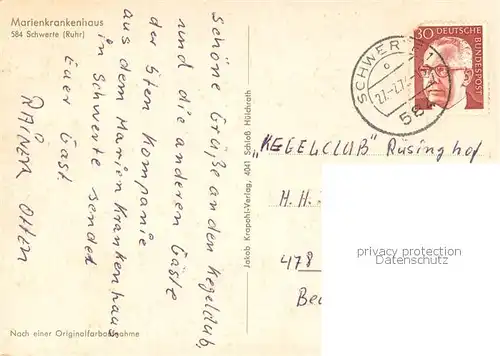 Marienkrankenhaus
584 Schwerte (Ruhr)
Schöne Grüße an den Kegelclub,
und die anderen Gäste
der 5ten Kompanie
aus dem Marien Krankenhaus
in Schwerte sendet
Euer Gast
RAINER OTTEN
Nach einer Originalfarbaufnahme
Jakob Krapohl-Verlag, 4041 Schloß Hülchrath
SCHWERTE
584
30 DEUTSCHE
BUNDESPOST
„KEGELCLUB" Rüsinghof
H. H.
478
privacy protection
Datenschutz